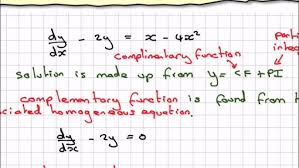 dy/dx - 2y = x - 4x²
complimentary function
parti
integ
solution is made up from y = CF + PI
complementary function is found from t
ociated homogeneous equation.
dy/dx - 2y = 0